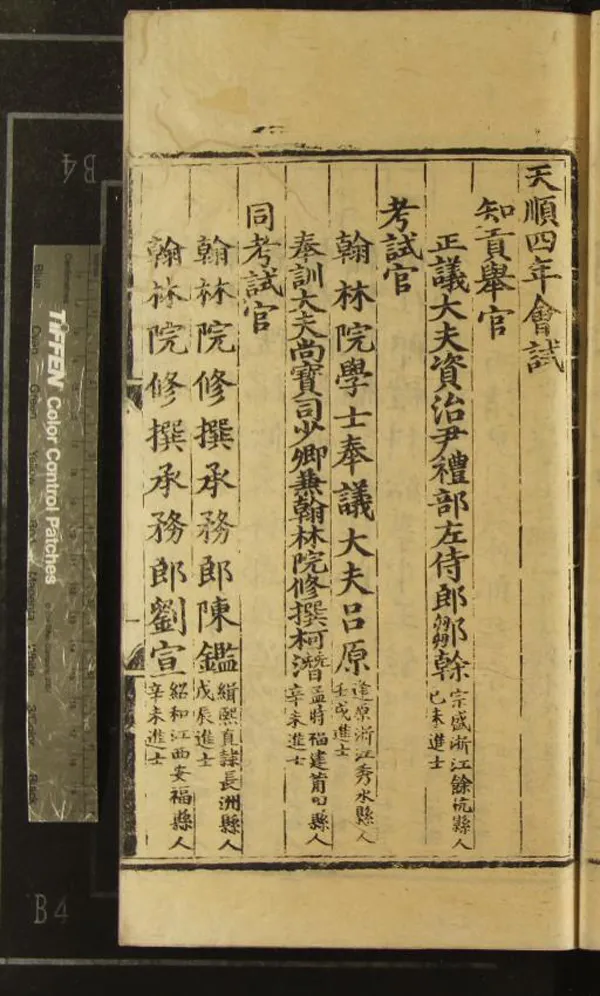 天順四年會試
知貢舉官
正議大夫資治尹禮部左侍郎鄒幹宗盛浙江餘杭縣人己未進士
考試官
翰林院學士奉議大夫呂原逢原浙江秀水縣人壬戌進士
奉訓大夫尚寶司少卿兼翰林院修撰柯潛孟時福建莆田縣人辛未進士
同考試官
翰林院修撰承務郎陳鑑緝熙直隸長洲縣人戊辰進士
翰林院修撰承務郎劉宣紹和江西安福縣人辛未進士
B4
TIFFEN Color Control Patches
B4